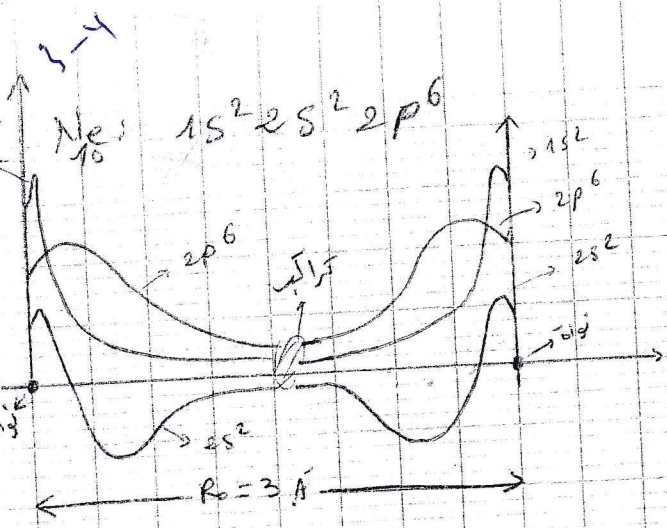 3-4
Ne: 1s² 2s² 2p⁶
10
1s²
2p⁶
2s²
2p⁶
تراكب
نواة
2s²
R₀ = 3 Å